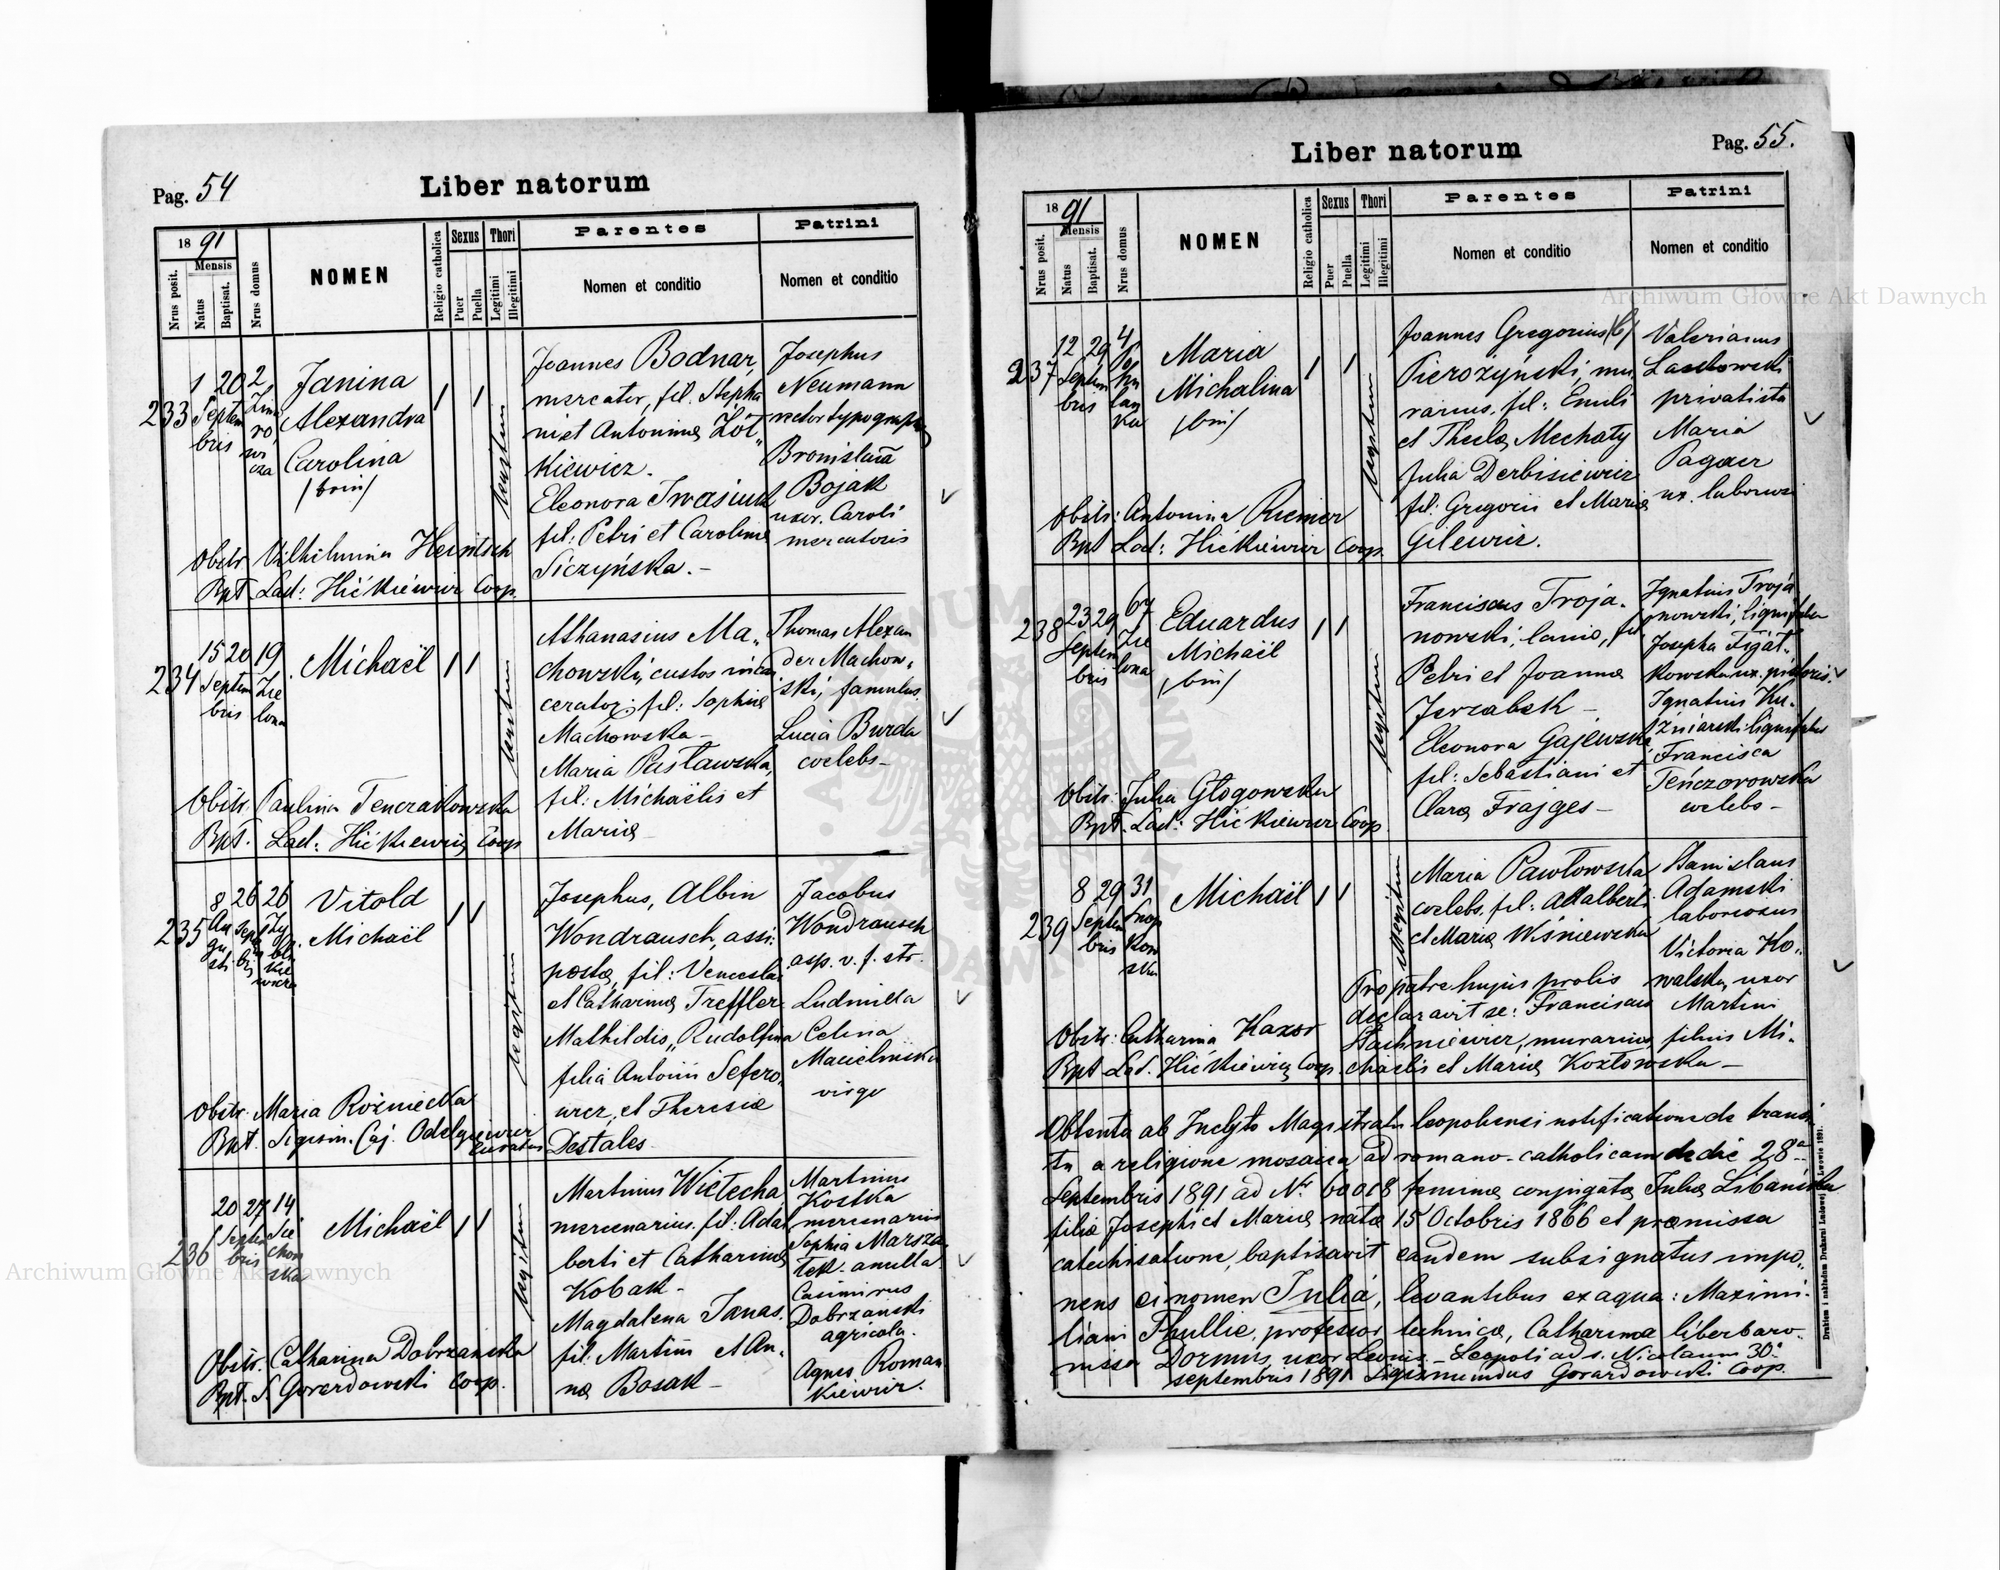 Pag. 54
Liber natorum
1891
Nrus posit.
Mensis
Natus
Baptisat.
Nrus domus
NOMEN
Religio catholica
Sexus
Puer
Puella
Thori
Legitimi
Illegitimi
Parentes
Nomen et conditio
Patrini
Nomen et conditio
233
1 Septembris
20
2
Janina
Alexandra
Carolina
/bini/
Joannes Bodnar,
mercator, fil. Stepha
ni et Antoninæ Żół„
kiewicz.
Eleonora Iwasiuk
fil: Petri et Carolinæ
Siczyńska.-
Josephus
Neumann
rector typograph
Bronislava
Bojak
uxor. Caroli
mercatoris
Obstr. Vilhelmina Heinisch
Bpt Lad: Hićkiewicz Coop.
234
15 20 19
Septem
bris
Zie
lona
Michaël
Athanasius Ma„
chowski, custos
fil: Sophiæ
Machowska-
Maria Pasławska,
fil: Michaëlis et
Mariæ-
Thomas Alexan
der Machow„
ski, famulus.
Lucia Burda
coelebs-
Obstr. Paulina Tenczakowska
Bpt. Lad: Hićkiewicz Coop
235
8 26 26
Au
gu
sti
Vitold
Michaël
Josephus, Albin
Wondrausch, assi:
postæ, fil: Venceslai
et Catharinæ Treffler
Mathildis, Rudolfina
filia Antonii Sefero„
wicz, et Theresiæ
Destales
Jacobus
Wondrausch
asp. v. f. str.
Ludmilla
Celina
virgo
Obstr. Maria Rożniecka
Bpt. Sigism. Caj. Odelgiewicz
236
20 27 14
Septem
bris
Michaël
Martinus Wietecha
mercenarius. fil: Adal
berti et Catharinæ
Kobak-
Magdalena Janas.
fil: Martini et An„
næ Bosak-
Martinus
Kostka
mercenarius
Sophia Marsza„
łek. ancilla
Casimirus
Dobrzanski
agricola.
Agnes Roman
kiewicz.
Obstr. Catharina Dobrzanska
Bpt. S. Gorazdowski Coop.
Pag. 55.
Liber natorum
1891
Nrus posit.
Mensis
Natus
Baptisat.
Nrus domus
NOMEN
Religio catholica
Sexus
Puer
Puella
Thori
Legitimi
Illegitimi
Parentes
Nomen et conditio
Patrini
Nomen et conditio
237
12 29 4
Septem
bris
Maria
Michalina
/bini/
Joannes Gregorius
Pierożyński, mu
rarius. fil: Emili
et Theclæ Mechaty
Julia Derbisiewicz
fil: Gregorii et Mariæ
Gilewicz.
Valerianus
Laskowski
privatista
Maria
Pagacz
ux. laborios
Obstr: Antonina Riemer
Bpt Lad: Hićkiewicz Coop.
238
23 29 67
Septem
bris
Zie
lona
Eduardus
Michaël
/bini/
Franciscus Troja.
nowski, lanio, fil.
Petri et Joannæ
Jerzabek-
Eleonora Gajewska
fil: Sebastiani et
Claræ Frajges-
Ignatius Troja
nowski, lignifaber
Josepha Figat„
kowska ux. pistoris.
Ignatius Ku„
źniarski lignifaber
Francisca
Tenczorowska
coelebs-
Obstr. Julia Głogowska
Bpt. Lad: Hićkiewicz Coop.
239
8 29 31
Septem
bris
Snop
kow
ska
Michaël
Maria Pawłowska
coelebs. fil: Adalberti
et Mariæ Wiśniewska
Pro patre hujus prolis
declaravit se: Franciscus
Stachniewicz, murarius, filius Mi„
chaelis et Mariæ Kozłowska-
Stanislaus
Adamski
laboriosus
Victoria Ko„
walska, uxor
Martini
Obstr: Catharina Kaxor
Bpt Lad. Hićkiewicz Coop.
Obtenta ab Inclyto Magistratu Leopoliensi notificatione de transi
tu a religione mosaica ad romano-catholicam de die 28ª
Septembris 1891 ad Nr. 60018 feminæ conjugatæ Juliæ Libańska
filiæ Josephi et Mariæ natæ 15 Octobris 1866 et præmissa
catechisatione, baptisavit eandem subsignatus impo„
nens ei nomen Julia, levantibus ex aqua: Maximi„
liani Thullie, professor technicæ, Catharina liberbaro„
nissa Dormus, uxor Leonis. - Leopoli ad s. Nicolaum 30:
septembris 1891 Sigismundus Gorazdowski Coop.
Drukiem i nakładem Drukarni Ludowej we Lwowie 1891.
Archiwum Główne Akt Dawnych
Archiwum Główne Akt Dawnych